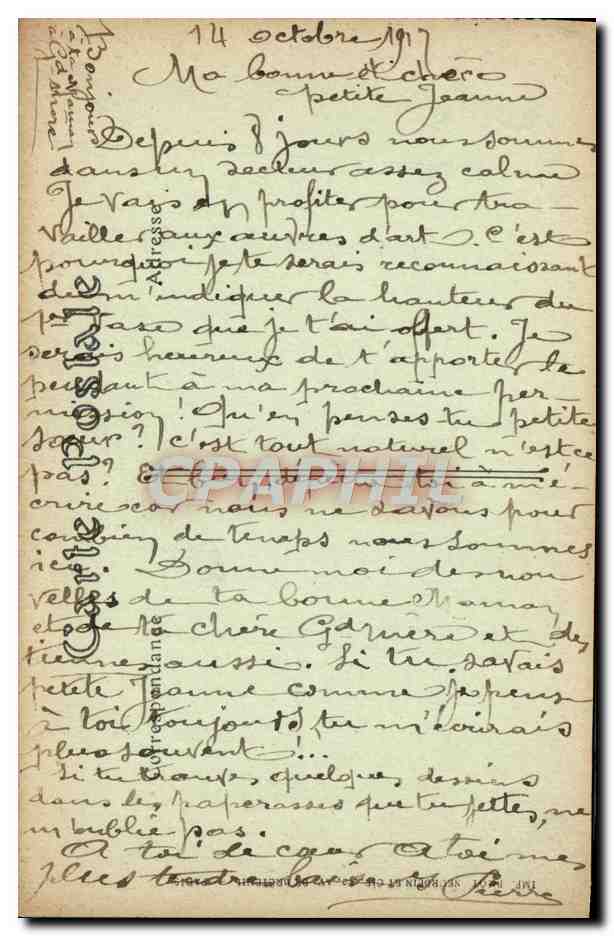 14 octobre 1917
Ma bonne et chère
petite Jeanne
Depuis 8 jours nous sommes
dans un secteur assez calme
Je vais en profiter pour tra-
vailler aux œuvres d'art. C'est
pourquoi je te serais reconnaissant
de m'indiquer la hauteur du
vase que je t'ai offert. Je
serais heureux de t'apporter le
pendant à ma prochaine per-
mission! Qu'en penses-tu petite
sœur? c'est tout naturel n'est ce
pas? Et toi à m'é-
crire car nous ne savons pour
combien de temps nous sommes
ici. Donne moi des nou
velles de ta bonne Maman
et de ta chère Gd Mère et des
tiennes aussi. Si tu savais
petite Jeanne comme je pense
à toi toujours, tu m'écrirais
plus souvent!...
Si tu trouves quelques dessins
dans les paperasses que tu jettes, ne
m'oublie pas.
A toi de cœur A toi mes
plus tendres baisers Pierre
Bonjours
à ta Maman
à Gd Mère
Carte Postale
Correspondance
Adresse
CPAPHIL